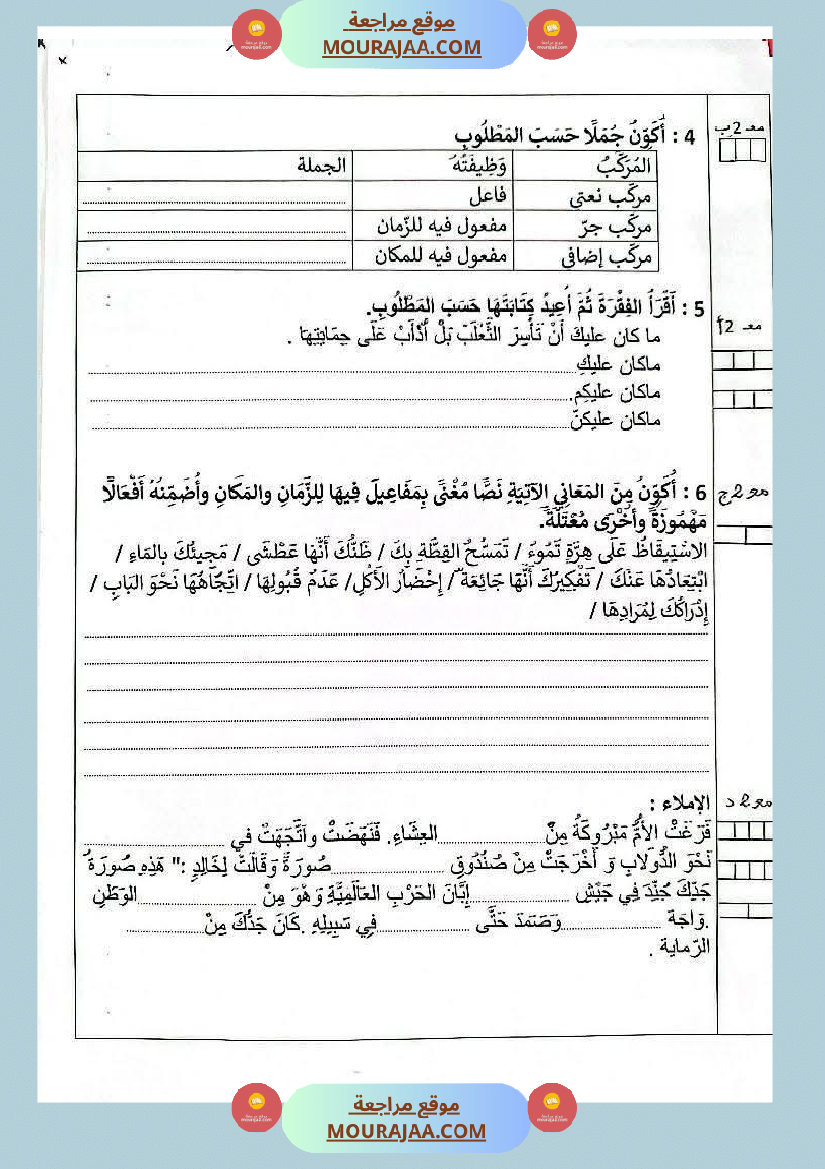 موقع مراجعة
MOURAJAA.COM
4 : أُكَوِّنُ جُمَلًا حَسَبَ المَطْلُوبِ
معـ 2ب
المُرَكَّبُ وَظِيفَتُهُ الجملة
مركّب نعتي فاعل
مركّب جرّ مفعول فيه للزّمان
مركّب إضافي مفعول فيه للمكان
5 : أَقْرَأُ الفِقْرَةَ ثُمَّ أُعِيدُ كِتَابَتَهَا حَسَبَ المَطْلُوبِ.
معـ 2أ
ما كان عليكَ أَنْ تَأْسِرَ الثَّعْلَبَ بَلْ أَدْأَبْ عَلَى حِمَايَتِهَا .
ماكان عليكِ
ماكان عليكم.
ماكان عليكنّ
6 : أُكَوِّنُ مِنَ المَعَانِي الآتِيَةِ نَصًّا مُغْنًى بِمَفَاعِيلَ فِيهَا لِلزَّمَانِ والمَكَانِ وأُضَمِّنُهُ أَفْعَالًا
مع 2 ج
مَهْمُوزَةً وأُخْرَى مُعْتَلَّةً.
الاسْتِيقاظُ عَلَى هِرَّةٍ تَمُوءُ / تَمَسُّحُ القِطَّةِ بِكَ / ظَنُّكَ أَنَّهَا عَطْشَى / مَجِيئُكَ بِالمَاءِ /
ابْتِعَادُهَا عَنْكَ / تَفْكِيرُكَ أَنَّهَا جَائِعَة / إِحْضَارُ الأَكْلِ/ عَدَمُ قُبُولِهَا / اتِّجَاهُهَا نَحْوَ البَابِ /
إِدْرَاكُكَ لِمُرَادِهَا /
الإملاء :
مع 2 د
فَرَغَتْ الأُمُّ مَبْرُوكَةُ مِنْ العِشَاءِ. فَنَهَضَتْ واتَّجَهَتْ في
نَحْوَ الدُّولَابِ وَ أَخْرَجَتْ مِنْ صُنْدُوقٍ صُورَةً وَقَالَتْ لِخَالِدٍ :" هَذِهِ صُورَةُ
جَدِّكَ جُنِّدَ فِي جَيْشِ إِبَّانَ الحَرْبِ العَالَمِيَّةِ وَهْوَ مِنْ الوَطَنِ
.وَاجَهَ وَصَمَدَ حَتَّى فِي سَبِيلِهِ .كَانَ جَدُّكَ مِنْ
الرّماية .
موقع مراجعة
MOURAJAA.COM